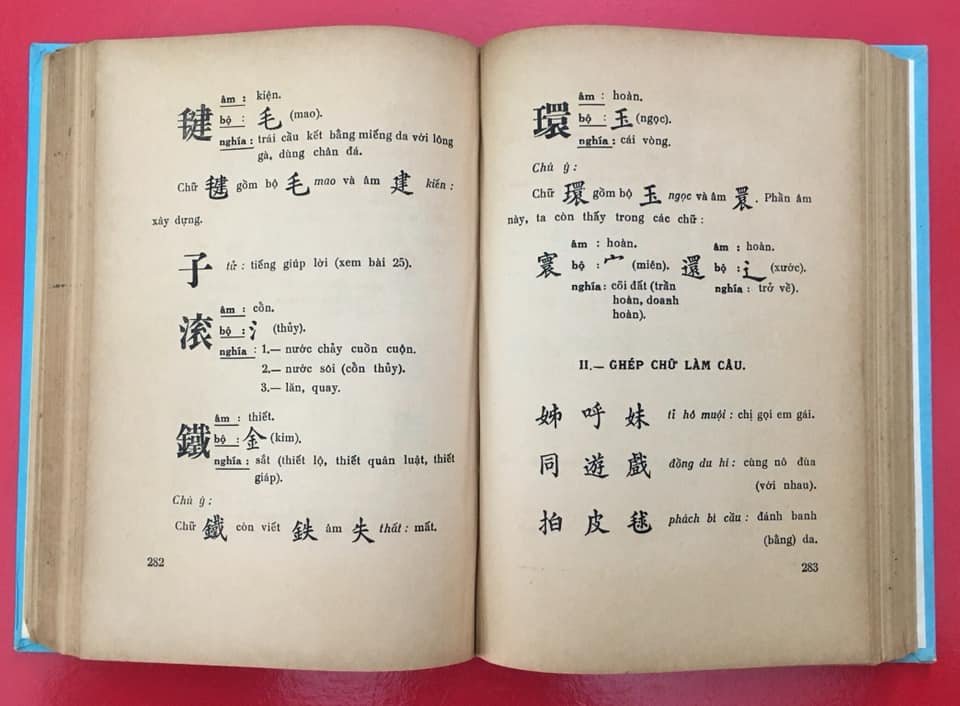 毽 âm : kiện.
bộ : 毛 (mao).
nghĩa : trái cầu kết bằng miếng da với lông
gà, dùng chân đá.
Chữ 毽 gồm bộ 毛 mao và âm 建 kiến :
xây dựng.
子 tử : tiếng giúp lời (xem bài 25).
滚 âm : cồn.
bộ : 氵 (thủy).
nghĩa : 1.— nước chảy cuồn cuộn.
2.— nước sôi (cồn thủy).
3.— lăn, quay.
鐵 âm : thiết.
bộ : 金 (kim).
nghĩa : sắt (thiết lộ, thiết quân luật, thiết
giáp).
Chú ý :
Chữ 鐵 còn viết 鉄 âm 失 thất : mất.
282
環 âm : hoàn.
bộ : 玉 (ngọc).
nghĩa : cái vòng.
Chú ý :
Chữ 環 gồm bộ 玉 ngọc và âm 睘. Phần âm
này, ta còn thấy trong các chữ :
寰 âm : hoàn.
bộ : 宀 (miên).
nghĩa : cõi đất (trần
hoàn, doanh
hoàn).
還 âm : hoàn.
bộ : 辶 (xước).
nghĩa : trở về).
II.— GHÉP CHỮ LÀM CÂU.
姊 呼 妹 tỉ hô muội : chị gọi em gái.
同 遊 戲 đồng du hí : cùng nô đùa
(với nhau).
拍 皮 毬 phách bì cầu : đánh banh
(bằng) da.
283